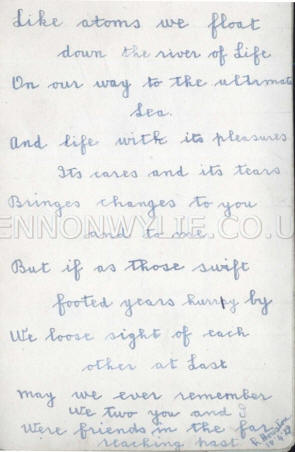 Like atoms we float
down the river of Life
On our way to the ultimate
Sea.
And life with its pleasures
Its cares and its tears
Bringes changes to you
ENNONWYLIE.CO.U
and to me.
But if as those swift
footed years hurry by
We loose sight of each
other at Last
may we ever remember
We two you and I
Were friends in the far
reaching past